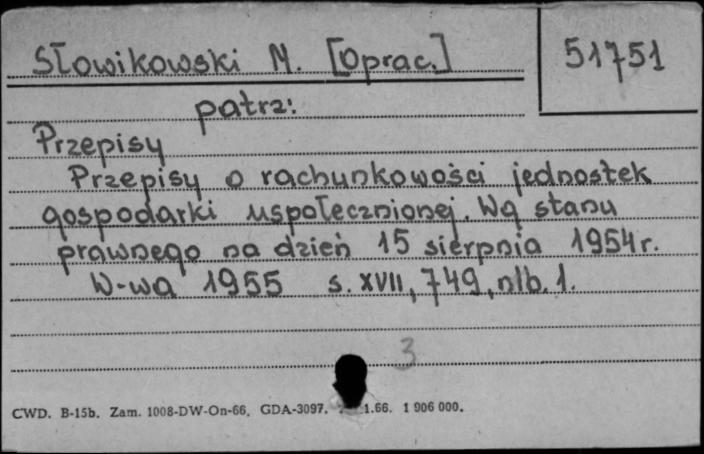 Słowikowski M. [Oprac.]
51751
patrz:
Przepisy
Przepisy o rachunkowości jednostek
gospodarki uspołecznionej. Wg stanu
prawnego na dzień 15 sierpnia 1954 r.
W-wa 1955 s. XVII, 749, nlb. 1.
3
CWD. B-15b. Zam. 1008-DW-On-66. GDA-3097. 1.66. 1 906 000.